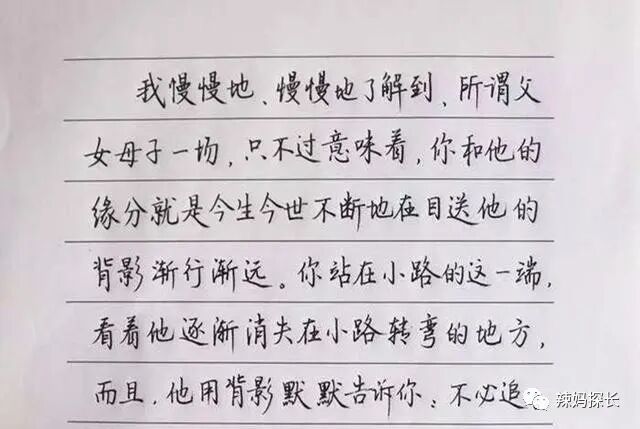 我慢慢地、慢慢地了解到，所谓父
女母子一场，只不过意味着，你和他的
缘分就是今生今世不断地在目送他的
背影渐行渐远。你站在小路的这一端，
看着他逐渐消失在小路转弯的地方，
而且，他用背影默默告诉你：不必追
辣妈探长